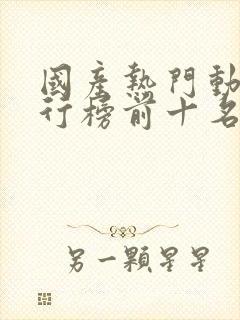 國產熱門動
行榜前十名
另一顆星星